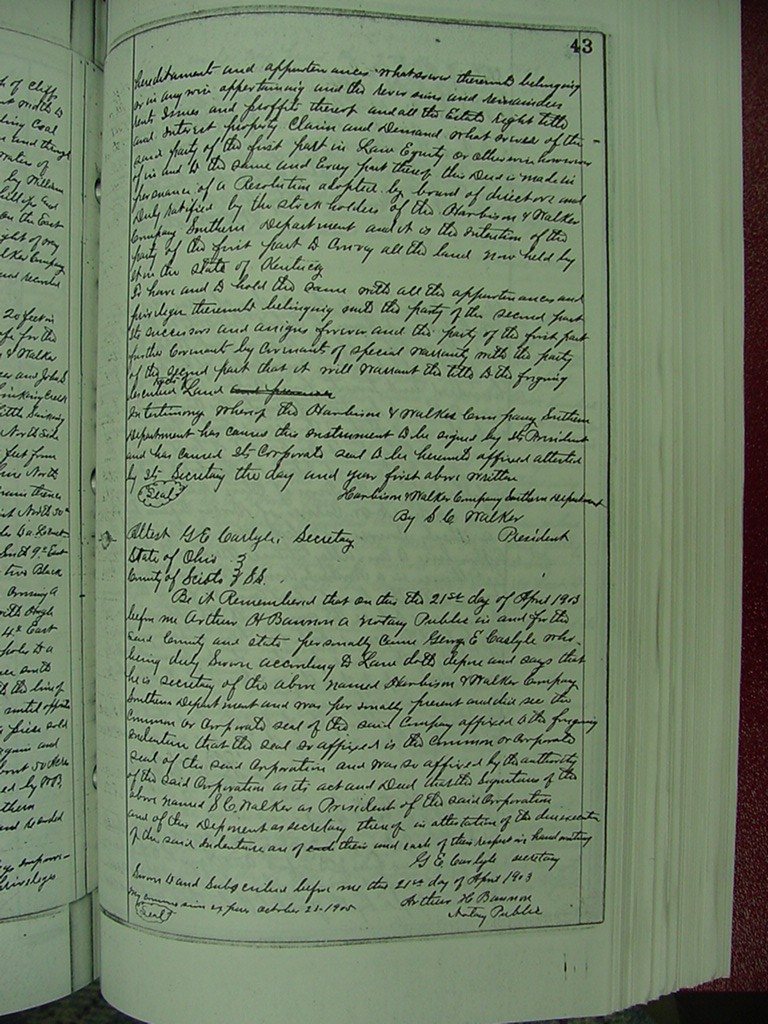 43
hereditaments and appurtenances whatsoever thereunto belonging
or in any wise appertaining and the reversions and remainders
rents Issues and proffits thereof and all the Estate Right title
and interest property Claim and Demand whatsoever of the
said party of the first part in Law Equity or otherwise however
of in and to the same and Every part thereof this Deed is made in
persuance of a Resolution adopted by board of directors and
Duly ratified by the stockholders of the Harbison & Walker
Company Southern Department and it is the intention of the
party of the first part to Convey all the land now held by
it in the State of Kentucky
To have and to hold the same with all the appurtenances and
privileges thereunto belonging unto the party of the second part
its successors and assigns forever and the party of the first part
further Covenants by Covenants of special warranty with the party
of the second part that it will warrant the title to the forgoing
described Land and premises
In testimony whereof the Harbison & Walker Company Southern
Department has caused this instrument to be signed by its President
and has caused its Corporate seal to be hereunto affixed attested
by its Secretary the day and year first above written
Seal
Harbison & Walker Company Southern Department
By S. C. Walker
President
Attest G E Carlyle, Secretary
State of Ohio }
County of Scioto } S.S.
Be it Remembered that on this the 21st day of April 1903
before me Arthur H Bannon a Notary Public in and for the
said County and state personally came George E Carlyle who
being duly Sworn according to Law doth depose and says that
he is secretary of the above named Harbison & Walker Company
Southern Department and was personally present and did see the
Common or Corporate seal of the said Company affixed to the forgoing
indenture that the seal so affixed is the Common or Corporate
seal of the said Corporation and was so affixed by the authority
of the said Corporation as its act and Deed that the Signatures of the
above named S. C. Walker as President of the said Corporation
and of this Deponent as secretary thereof in attestation of the due execution
of the said Indenture are of their and each of their respective handwriting
G E Carlyle secretary
Sworn to and Subscribed before me this 21st day of April 1903
My commission expires October 21-1905
Arthur H Bannon
Notary Public
Seal